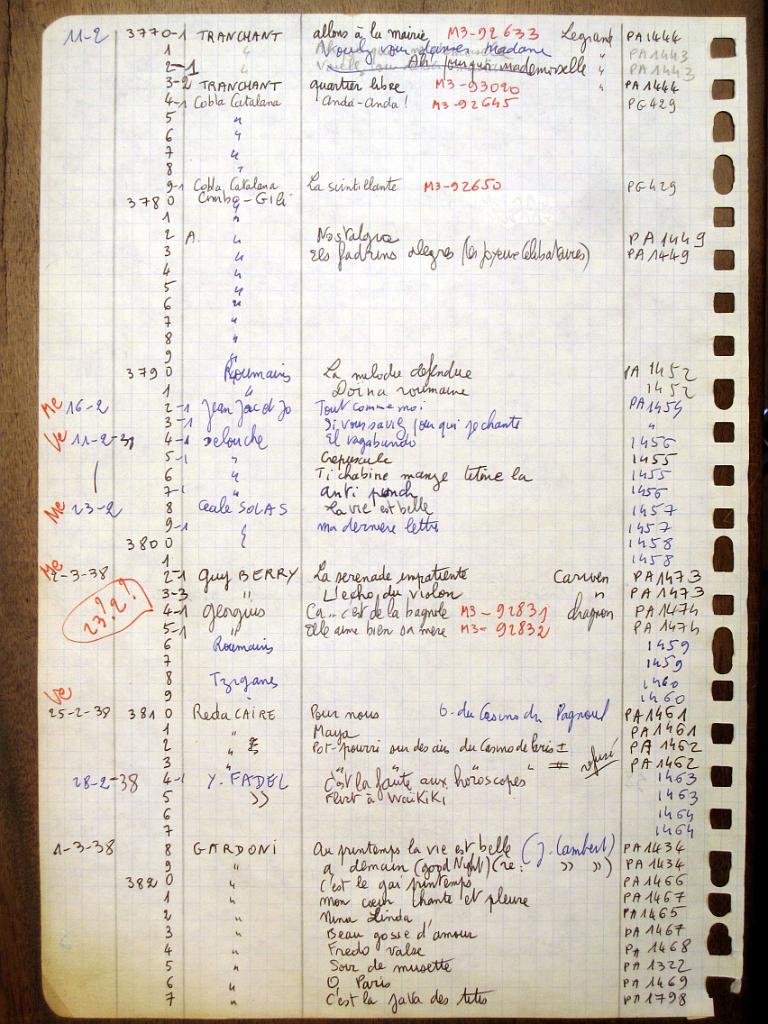 11-2 3770-1 TRANCHANT allons à la mairie M3-92633 Legrand PA1444
1 " Voulez vous danser Madame " PA1443
2-1 " Ah! pourquoi mademoiselle " PA1443
3-2 TRANCHANT quartier libre M3-93020 " PA1444
4-1 Cobla Catalana Anda-Anda! M3-92645 PG429
5 "
6 "
7 "
8 "
9-1 Cobla Catalana La scintillante M3-92650 PG429
3780 Combo-Gili
1 "
2 A. " Nostalgia PA1449
3 " els fadrins alegres (les joyeux célibataires) PA1449
4 "
5 "
6 "
7 "
8 "
9 "
3790 Roumains La melodie defendue PA 1452
1 " Doïna roumaine 1452
Me 16-2 2-1 Jean Jac et Jo Tout comme moi PA1454
3-1 " Si vous saviez pour qui je chante "
Ve 11-2-38 4-1 Delouche El vagabundo 1456
5-1 " Crepuscule 1455
6 " Ti chabine manze tetine la 1455
7-1 " anti punch 1456
Me 23-2 8 Cecile SOLAS La vie est belle 1457
9-1 " ma derniere lettre 1457
3800 1458
1 1458
Me 2-3-38 2-1 Guy BERRY La serenade impatiente Cariven PA1473
3-3 " L'echo du violon " PA1473
23?2? 4-1 Georgius Ca... c'est de la bagnole M3-92831 chagnon PA1474
5-1 " Elle aime bien sa mère M3-92832 PA1474
6 Roumains 1459
7 1459
8 Tziganes 1460
9 1460
Ve 25-2-38 3810 Reda CAIRE Pour nous O. du Casino du Pagnoul PA1461
1 " Maya PA1461
2 " Pot-pourri sur des airs du Casino de Paris I PA 1462
3 " " " " II refusé PA1462
28-2-38 4-1 Y. FADEL C'est la faute aux horoscopes 1463
5 )) Flirt à WaiKiKi 1463
6 1464
7 1464
1-3-38 8 GARDONI Au printemps la vie est belle (J. Lambert) PA1434
9 " a demain (good Night) (re: )) )) ) PA1434
3820 " C'est le gai printemps PA1466
1 " mon cœur chante et pleure PA1467
2 " Nina Linda PA1465
3 " Beau gosse d'amour PA1467
4 " Fredo valse PA 1468
5 " Soir de musette PA 1322
6 " O, Paris PA 1469
7 " C'est la java des tetes PA 1798